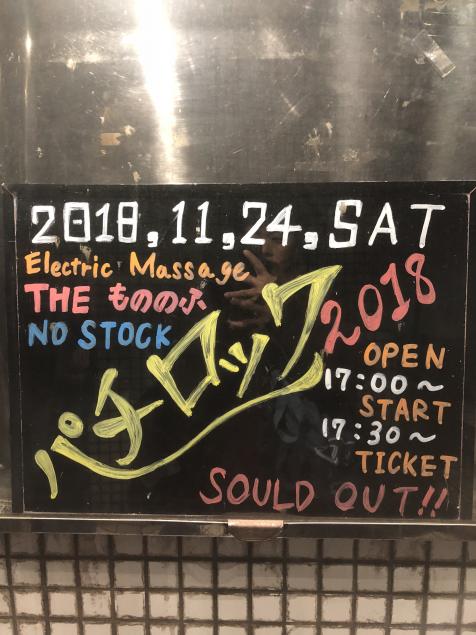 2018,11,24,SAT
Electric Massage
THE もののふ
NO STOCK
パチロック
2018
OPEN
17:00~
START
17:30~
TICKET
SOULD OUT!!